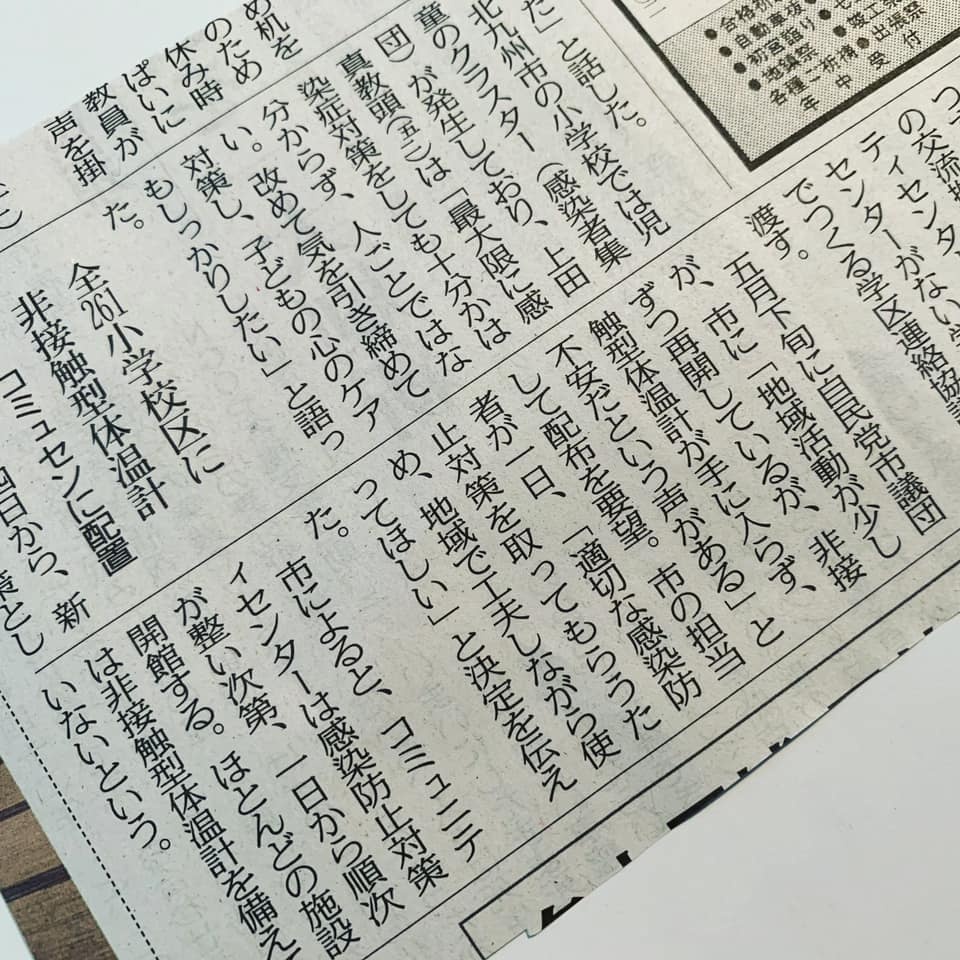 め机を
のため
休み時
ぱいに
教員が
声を掛
た」と話した。
北九州市の小学校では児
童のクラスター（感染者集
団）が発生しており、上田
真教頭（五二）は「最大限に感
染症対策をしても十分かは
分からず、人ごとではな
い。改めて気を引き締めて
対策し、子どもの心のケア
もしっかりしたい」と語っ
た。
全261小学校区に
非接触型体温計
コミュセンに配置
四日から、新
策とし
の交流
ティセンタ
センターがない学
でつくる学区連絡協
渡す。
五月下旬に自民党市議団
が、市に「地域活動が少し
ずつ再開しているが、非接
触型体温計が手に入らず、
不安だという声がある」と
して配布を要望。市の担当
者が一日、「適切な感染防
止対策を取ってもらうた
め、地域で工夫しながら使
ってほしい」と決定を伝え
た。
市によると、コミュニテ
ィセンターは感染防止対策
が整い次第、一日から順次
開館する。ほとんどの施設
は非接触型体温計を備えて
いないという。
●自動車
●初宮詣り
●地鎮祭
●竣工祭
●出張祭
各種一祈
年中受付